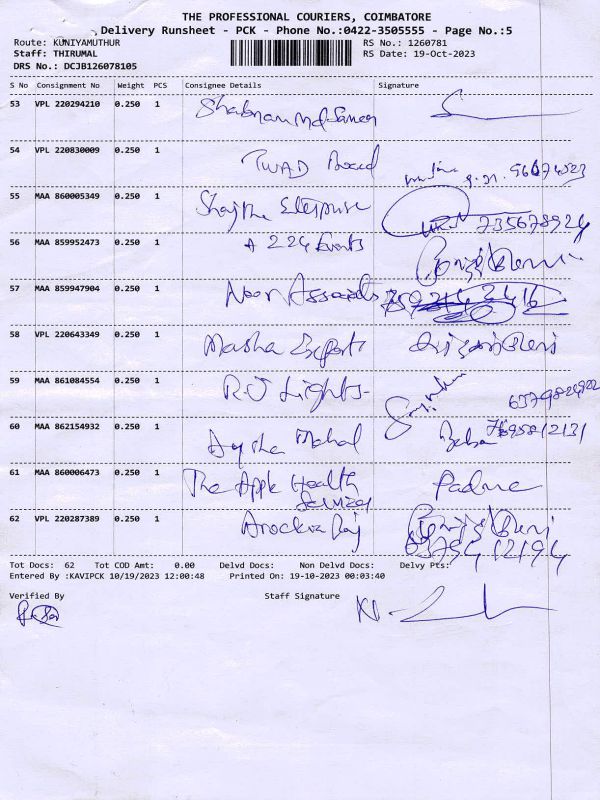 THE PROFESSIONAL COURIERS, COIMBATORE
Delivery Runsheet - PCK - Phone No.:0422-3505555 - Page No.:5
Route: KUNIYAMUTHUR RS No.: 1260781
Staff: THIRUMAL RS Date: 19-Oct-2023
DRS No.: DCJB126078105
S No Consignment No Weight PCS Consignee Details Signature
53 VPL 220294210 0.250 1 Shabnam Md
54 VPL 220830009 0.250 1 TWAD Board
55 MAA 860005349 0.250 1
56 MAA 859952473 0.250 1 A 224 Events
57 MAA 859947904 0.250 1 Noor
58 VPL 220643349 0.250 1 Masha Export
59 MAA 861084554 0.250 1 Lights
60 MAA 862154932 0.250 1 Aysha Mahal
61 MAA 860006473 0.250 1 The Apple Health Padma
62 VPL 220287389 0.250 1 Arockia Raj
6375412194
Tot Docs: 62 Tot COD Amt: 0.00 Delvd Docs: Non Delvd Docs: Delvy Pts:
Entered By :KAVIPCK 10/19/2023 12:00:48 Printed On: 19-10-2023 00:03:40
Verified By Staff Signature